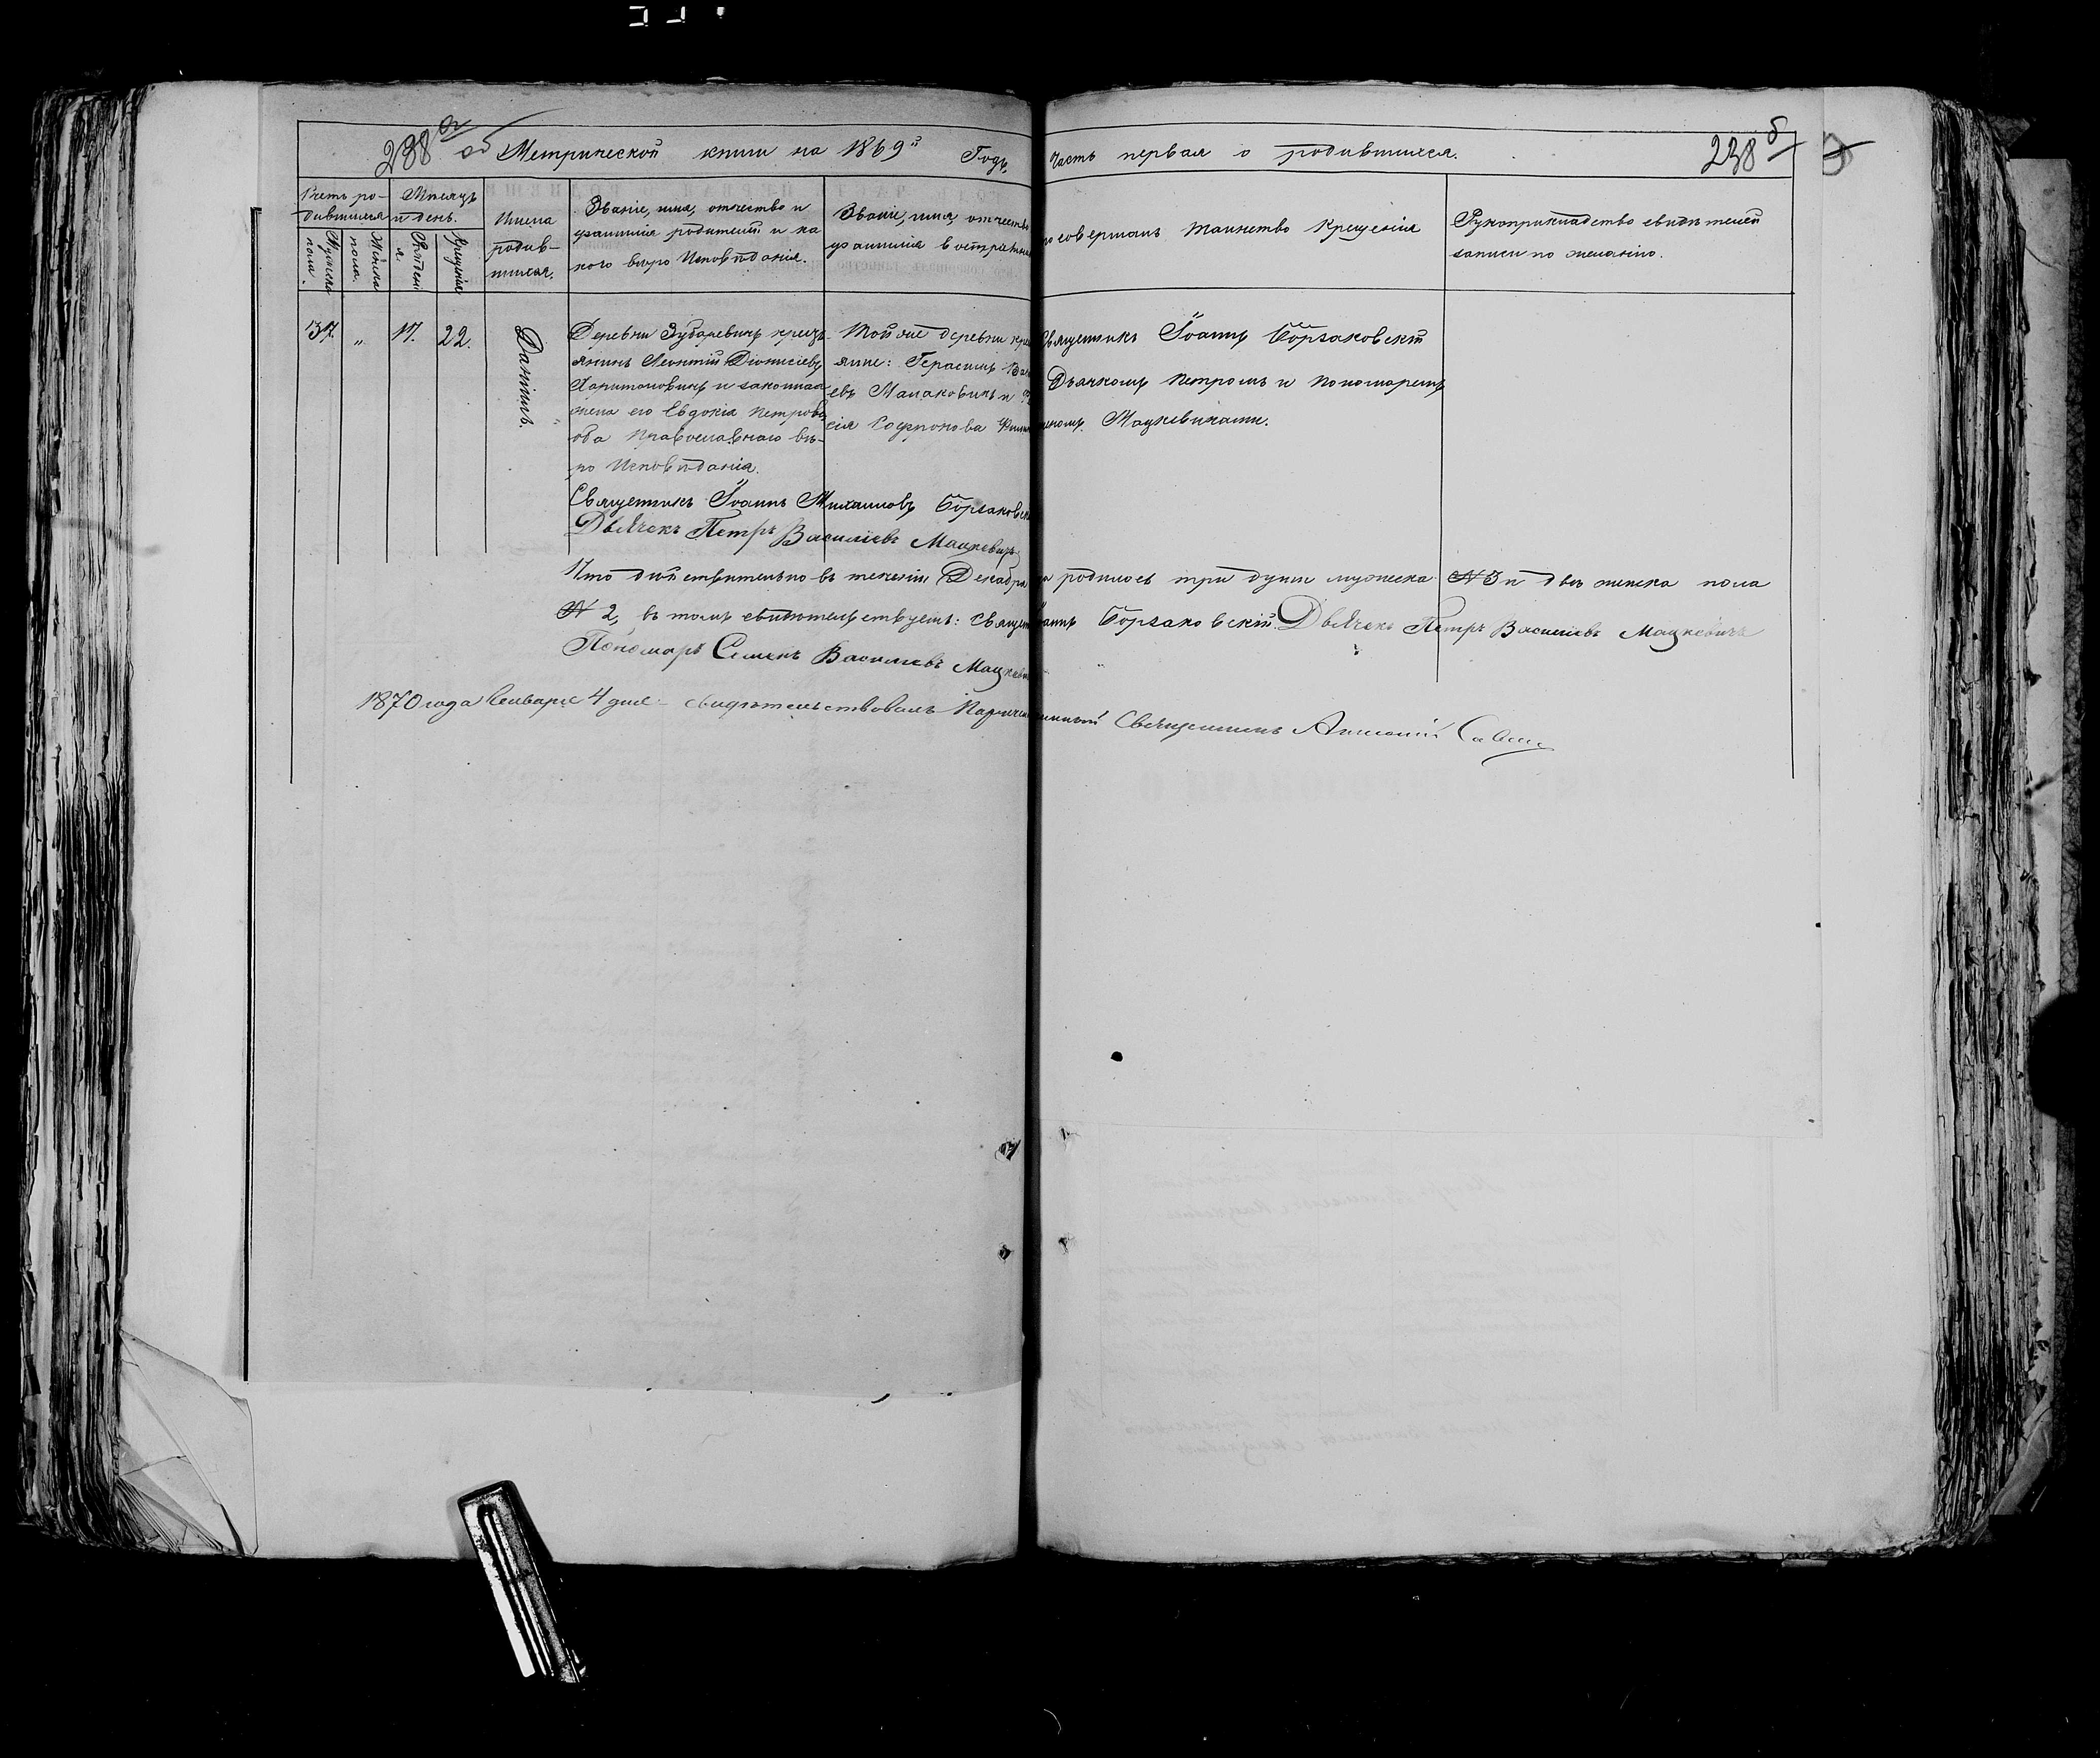 238 а об Метрической книги на 1869й Годъ, Часть первая о родившихся. 238 б
Счетъ ро- Мѣсяцъ
дившихся и день.
Мужеска пола.
Женска пола.
Рожденія.
Крещенія
Имена
родив-
шихся.
Званіе, имя, отчество и
фамилія родителей и ка
кого вѣроисповѣданія.
Званіе, имя, отчество
фамилія воспріемни
то совершалъ таинство Крещенія
Рукоприкладство свидѣтелей
записи по желанію.
37. „ 17. 22.
Даніилъ.
Деревни Зубаревичъ кресть
янинъ Леонтій Діонисіевъ
Харитоновичъ и законная
жена его Евдокія Петрова
оба Православнаго вѣ-
ро Исповѣданія.
Той же деревни кре
яне: Герасимъ
евъ Малаковичъ и
сія Софронова
Священникъ Іоаннъ Борзаковскій
Дьячкомъ Петромъ и Пономаремъ
Мацкевичами.
Священникъ Іоаннъ Михаиловъ Борзаковск
Дьячекъ Петръ Василіевъ Мацкевичъ
Что дѣйствительно въ теченіи Декабря родилось три души мужеска № 3 и двѣ женска пола
№ 2, въ томъ свидѣтельствуемъ: Священ Іоаннъ Борзаковскій Дьячекъ Петръ Василіевъ Мацкевичъ
Пономарь Семенъ Василіевъ Мацкеви
1870 года Января 4 дня свидѣтельствовалъ Священникъ Антоній